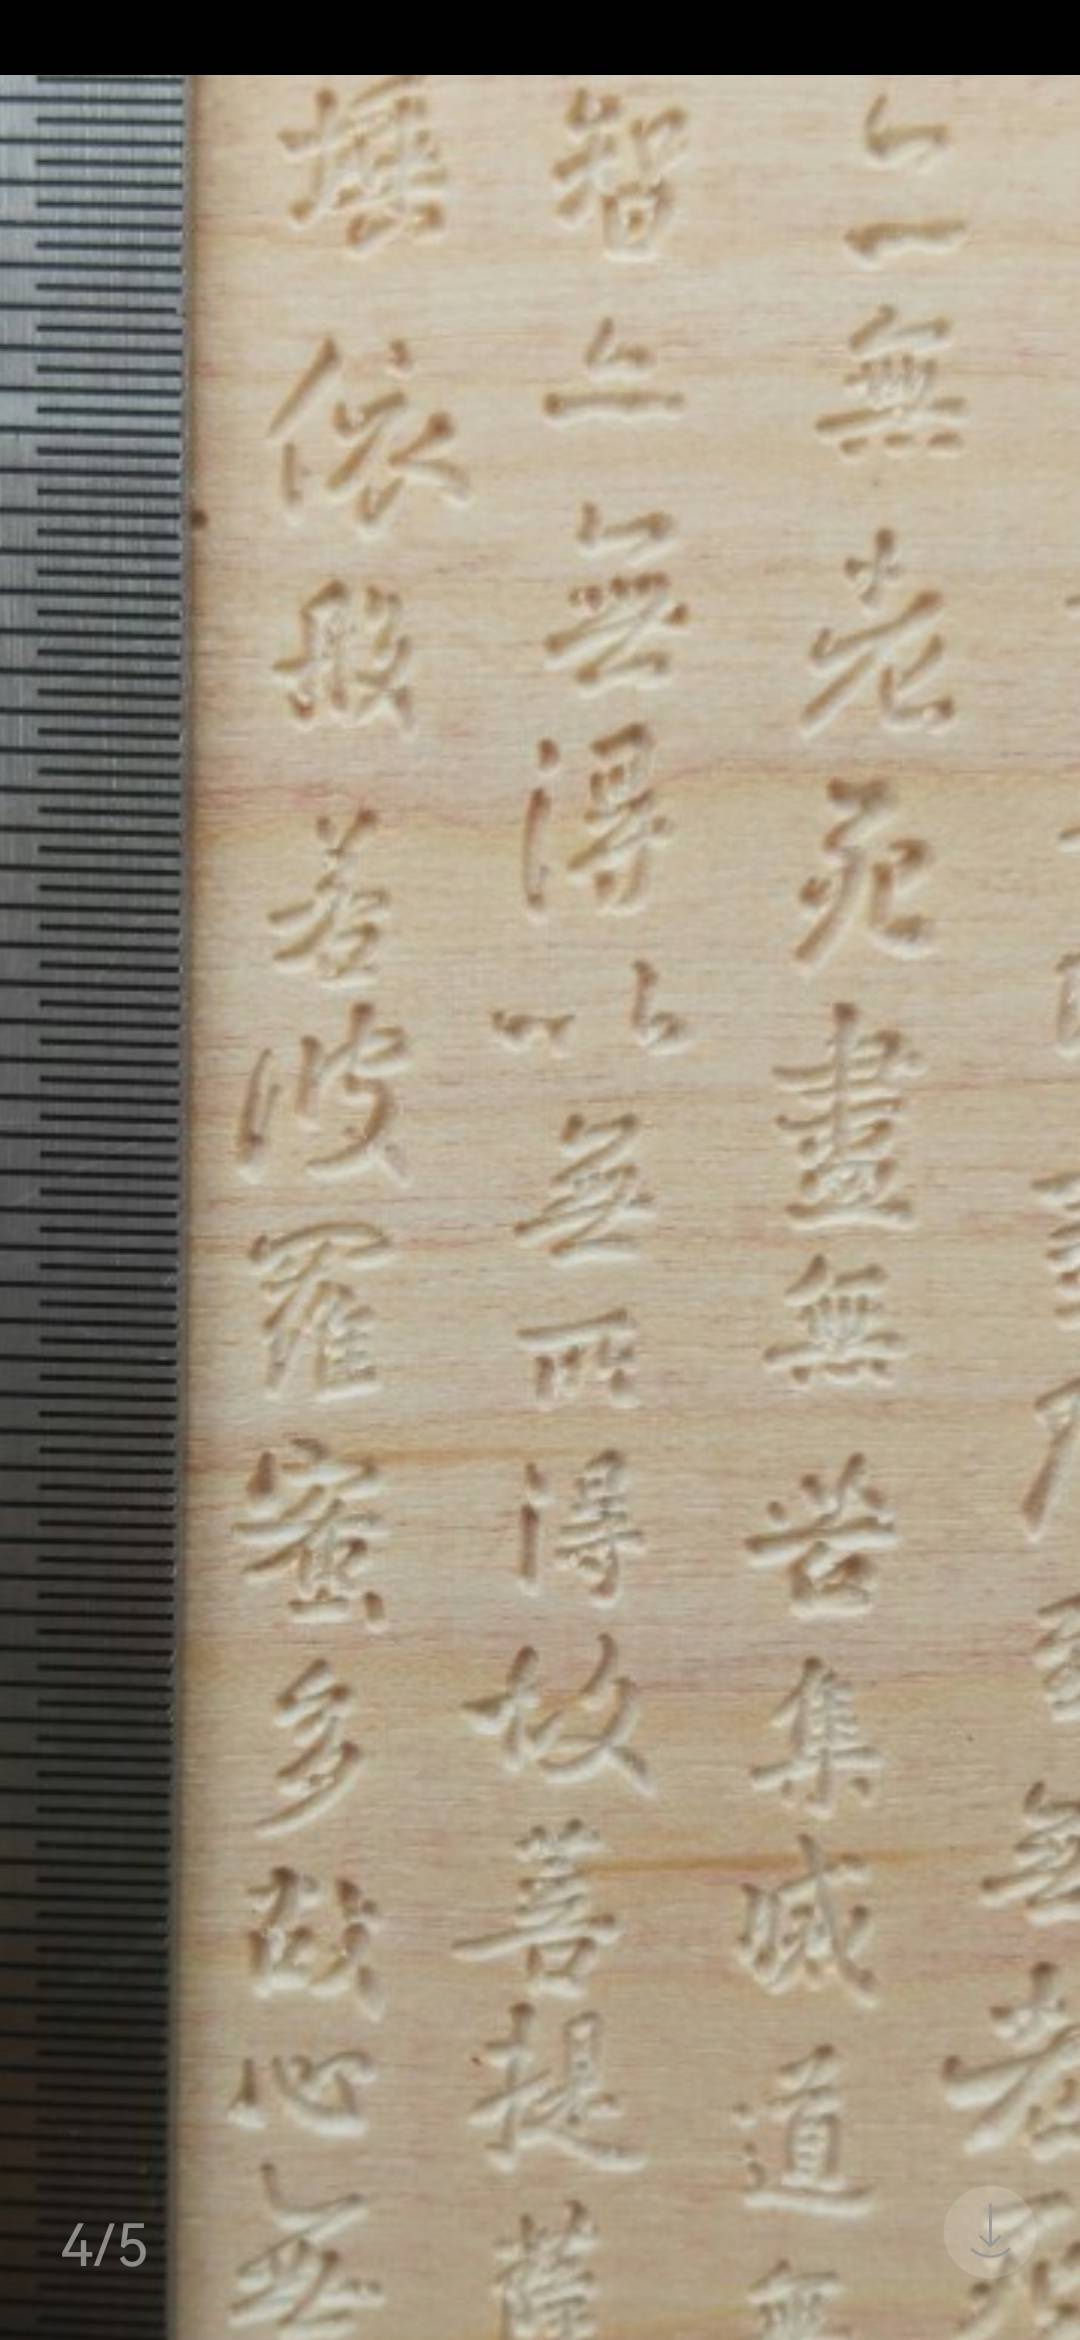 至無老死
亦無老死盡無苦集滅道無
智亦無得以無所得故菩提薩
埵依般若波羅蜜多故心無
4/5